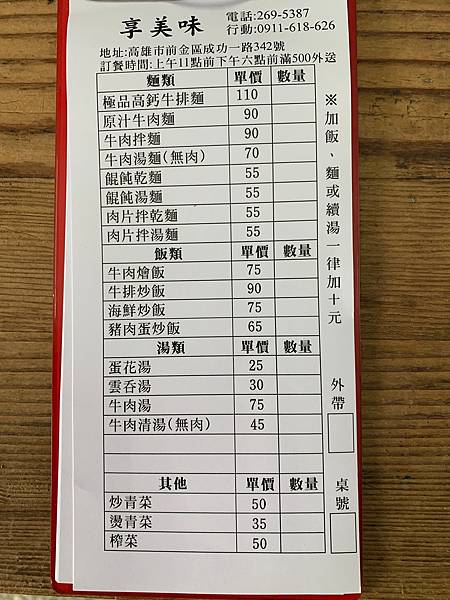 享美味
電話:269-5387
行動:0911-618-626
地址:高雄市前金區成功一路342號
訂餐時間:上午11點前下午六點前滿500外送
麵類 單價 數量
極品高鈣牛排麵 110
原汁牛肉麵 90
牛肉拌麵 90
牛肉湯麵(無肉) 70
餛飩乾麵 55
餛飩湯麵 55
肉片拌乾麵 55
肉片拌湯麵 55
飯類 單價 數量
牛肉燴飯 75
牛排炒飯 90
海鮮炒飯 75
豬肉蛋炒飯 65
湯類 單價 數量
蛋花湯 25
雲吞湯 30
牛肉湯 75
牛肉清湯(無肉) 45
其他 單價 數量
炒青菜 50
燙青菜 35
榨菜 50
※加飯、麵或續湯一律加十元
外帶
桌號